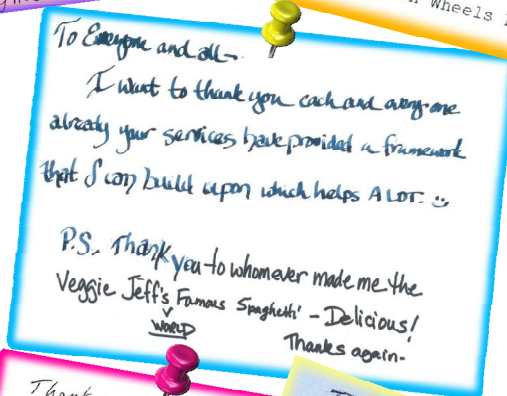 Wheels
To Everyone and all~
I want to thank you each and every one
already your services have provided a framework
that I can build upon which helps A LOT. :)
P.S. Thank you to whomever made me the
Veggie Jeff's Famous Spaghetti! - Delicious!
WORLD
Thanks again-
Thank